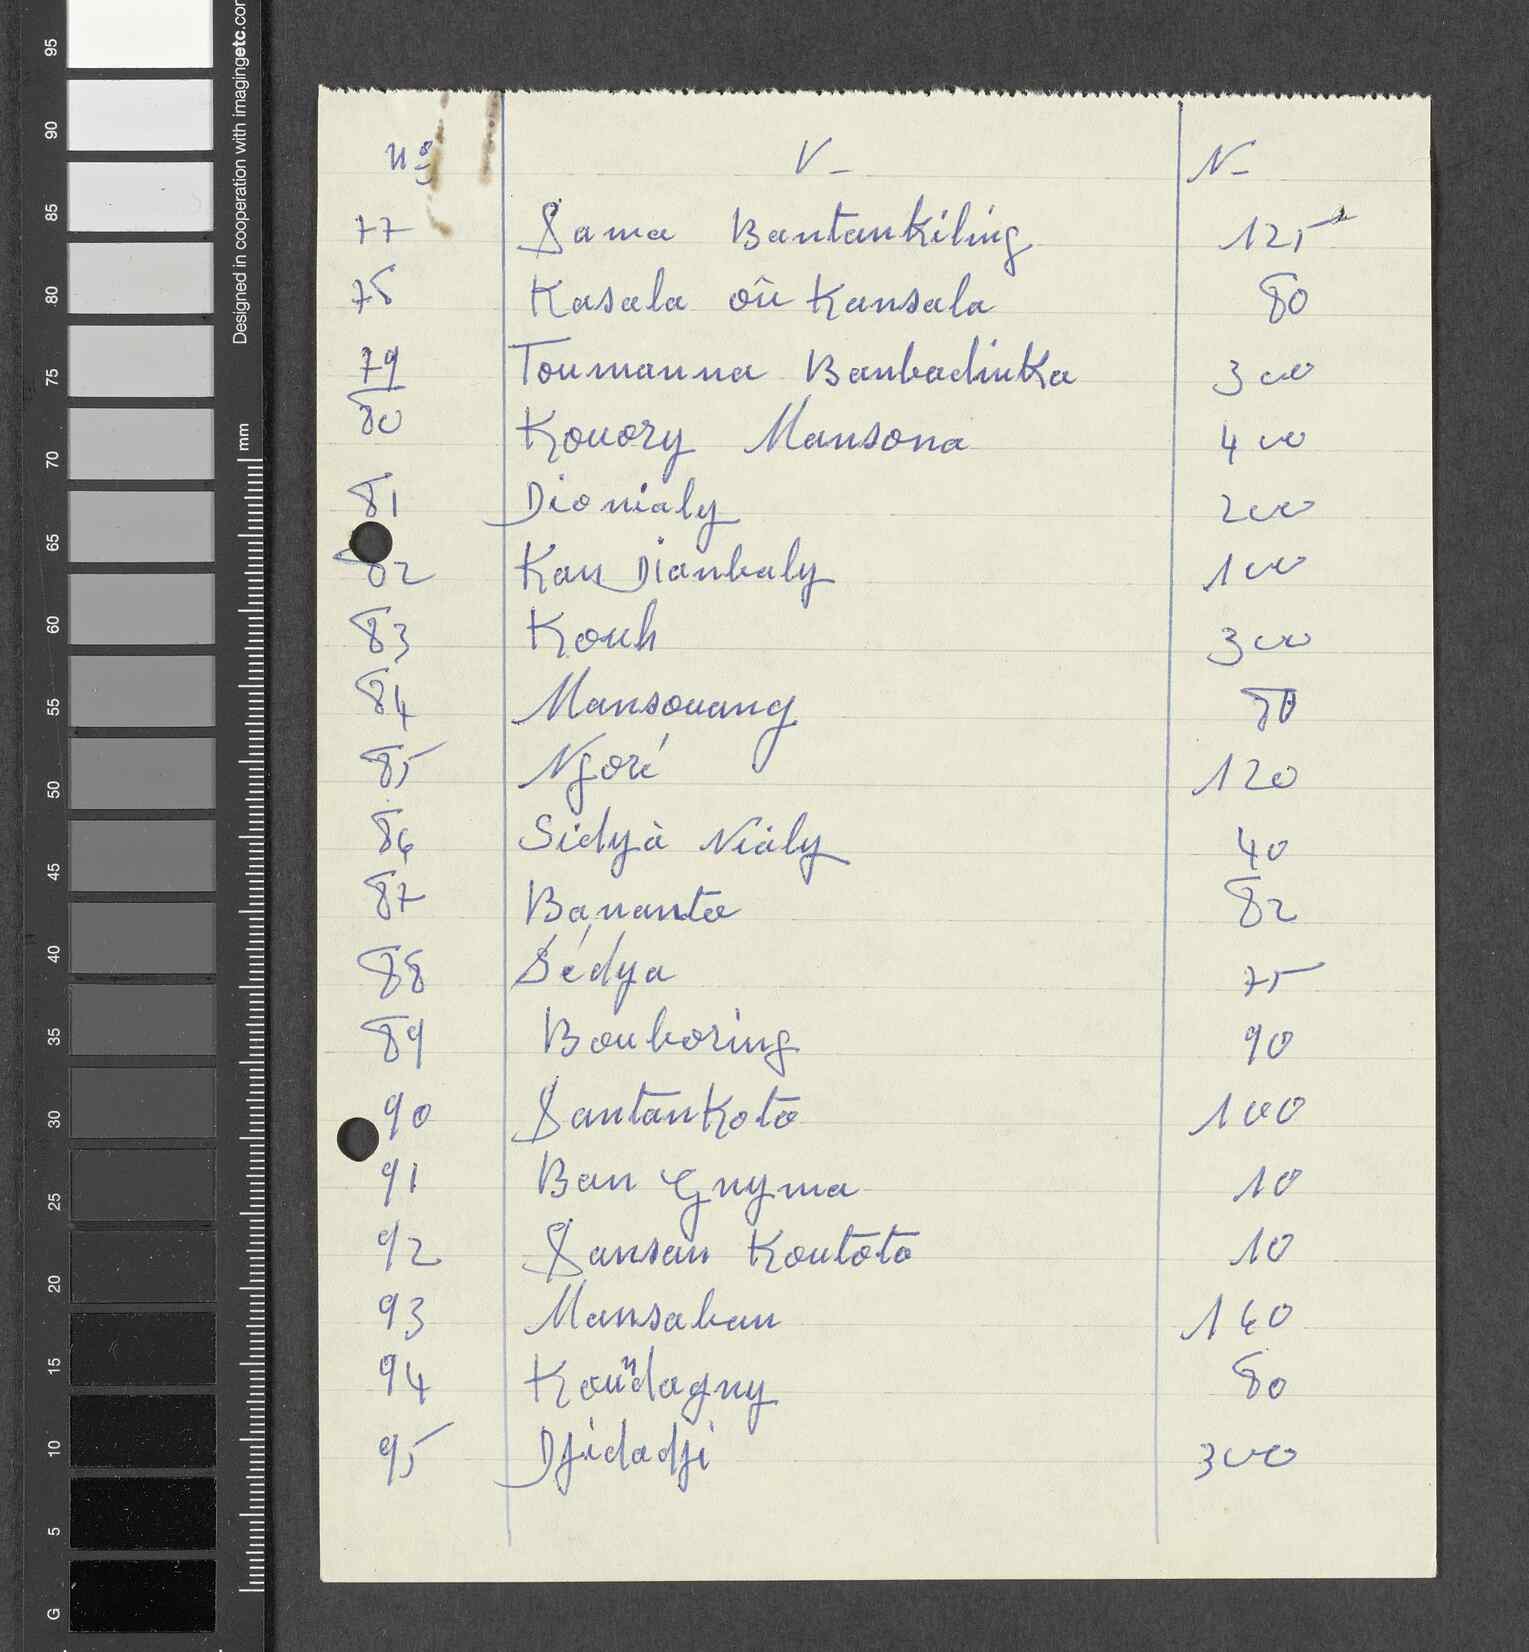 Nos V- N-
77 Sama Bantankiling 125
78 Kasala où Kansala 80
79 Toumanna Banbadinka 300
80 Kouory Mansona 400
81 Dionialy 200
82 Kan Dianbaly 100
83 Kouh 300
84 Mansouang 80
85 Ngoré 120
86 Sidyà Nialy 40
87 Bananto 82
88 Sédya 75
89 Bouboring 90
90 Santankoto 100
91 Ban Gnyma 10
92 Sansan Koutoto 10
93 Mansaban 140
94 Koundagny 80
95 Djidadji 300
Designed in cooperation with imagingetc.com
mm
95
90
85
80
75
70
65
60
55
50
45
40
35
30
25
20
15
10
5
G